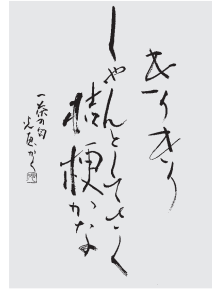 きりきり
しやんとしてさく
桔梗かな
一茶の句
光恵かく